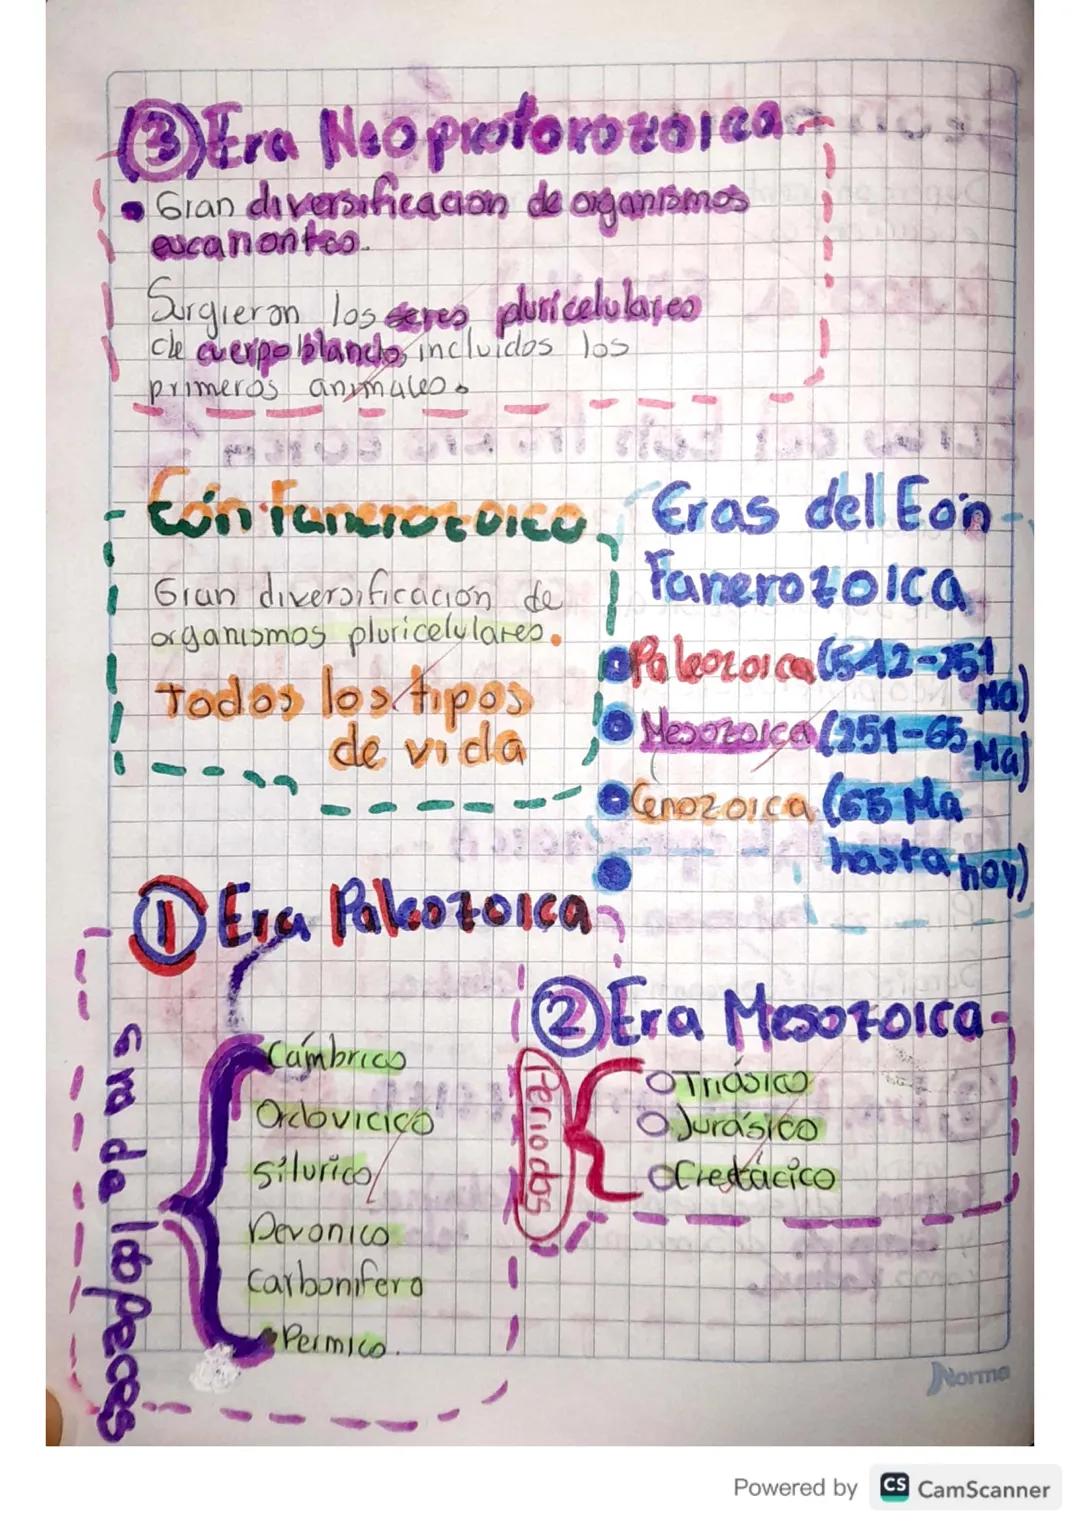 ③ Era Neoprotorozoica
• Gran diversificación de organismos
eucariontes.
Surgieron los seres pluricelulares
de cuerpo blando, incluidos los
primeros animales.
Eón Fanerozoico
Gran diversificación de
organismos pluricelulares.
Todos los tipos
de vida
Eras dell Eón
Fanerozoica
Paleozoica (542-251
Ma)
Mesozoica (251-65
Ma)
Cenozoica (65 Ma
hasta hoy)
① Era Paleozoica
Cámbrico
Ordovicico
Silurico
Devonico
Carbonifero
Permico.
② Era Mesozoica
Periodos
Triásico
Jurásico
Cretácico
Norma
Powered by CS CamScanner